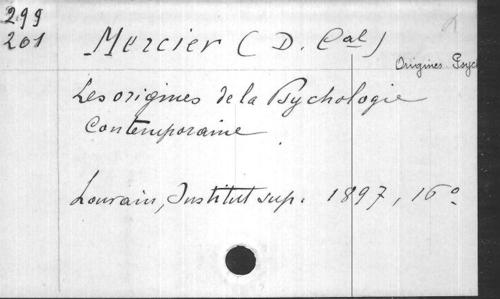 299
201
Mercier (D. Cal)
Origines Psych
Les origines de la Psychologie
Contemporaine
Louvain, Institut sup. 1897, 16º